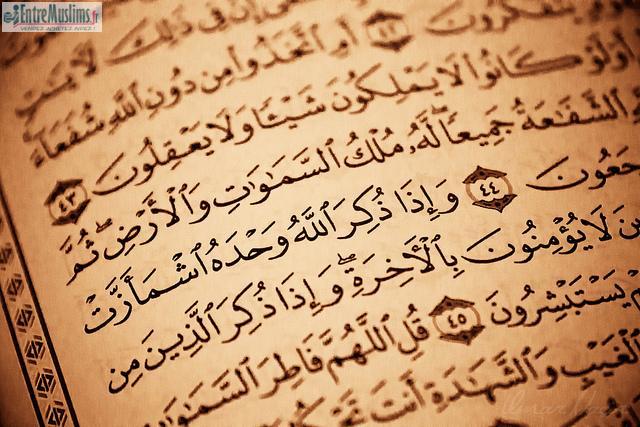 EntreMuslims.fr
VENDEZ ACHETEZ AVREZ !
إن فى ذلك لأيت
يتفكرون ٤٢ أم اتخذوا من دون الله شفعاء
أولو كانوا لا يملكون شيئا ولا يعقلون ٤٣
الشفعة جميعا له ملك السموت والأرض ثم
جعون ٤٤ وإذا ذكر الله وحده اشمأزت
لا يؤمنون بالأخرة وإذا ذكر الذين من
يستبشرون ٤٥ قل اللهم فاطر السموت
الغيب والشهدة أنت تحكم